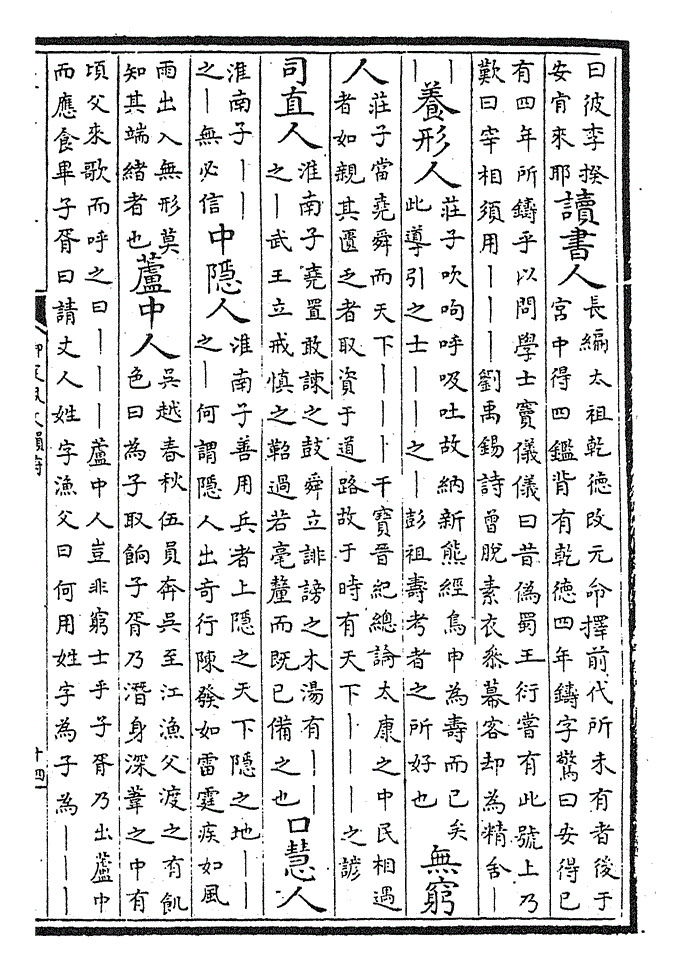 曰彼李揆
安肯來耶
讀書人
長編太祖乾德改元命擇前代所未有者後于
宮中得四鑑背有乾德四年鑄字驚曰安得已
有四年所鑄乎以問學士竇儀儀曰昔偽蜀王衍嘗有此號上乃
歎曰宰相須用｜｜｜劉禹錫詩曾脫素衣叅幕客却為精舍｜
｜
｜
養形人
莊子吹呴呼吸吐故納新熊經鳥申為壽而已矣
此導引之士｜｜之｜彭祖壽考者之所好也
無窮
人
莊子當堯舜而天下｜｜｜干寶晉紀總論太康之中民相遇
者如親其匱乏者取資于道路故于時有天下｜｜｜之諺
司直人
淮南子堯置敢諫之鼓舜立誹謗之木湯有｜｜
之｜武王立戒慎之鞀過若毫釐而既已備之也
口慧人
淮南子｜｜
之｜無必信
中隱人
淮南子善用兵者上隱之天下隱之地｜｜
之｜何謂隱人出奇行陳發如雷霆疾如風
雨出入無形莫
知其端緒者也
蘆中人
吳越春秋伍員奔吳至江漁父渡之有飢
色曰為子取餉子胥乃潛身深葦之中有
頃父來歌而呼之曰｜｜｜蘆中人豈非窮士乎子胥乃出蘆中
而應食畢子胥曰請丈人姓字漁父曰何用姓字為子為｜｜
十四